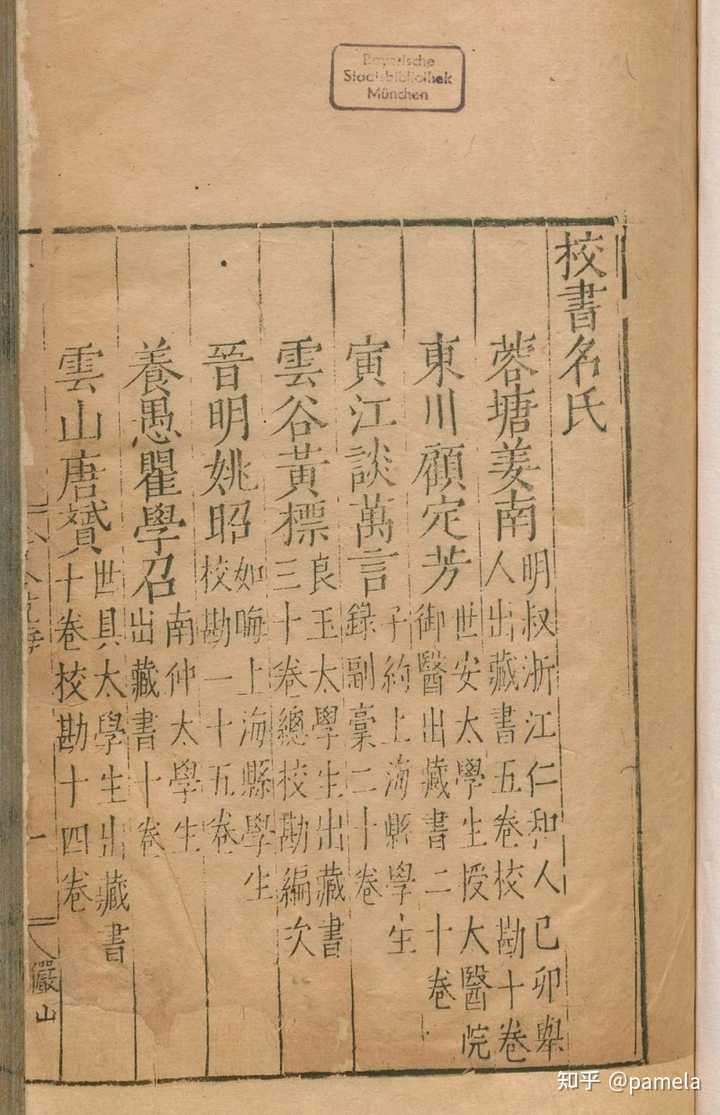 Bayerische
Staatsbibliothek
München
校書名氏
蓉塘姜南
明叔浙江仁和人己卯舉
人出藏書五卷校勘十卷
東川顧定芳
世安太學生授大醫院
御醫出藏書二十卷
寅江談萬言
子約上海縣學生
錄副藁二十卷
雲谷黃標
良玉太學生出藏書
三十卷總校勘編次
晉明姚昭
如晦上海縣學生
校勘一十五卷
養愚瞿學召
南仲太學生
出藏書十卷
雲山唐贇
世具太學生出藏書
十卷校勘十四卷
儼山
知乎 @pamela